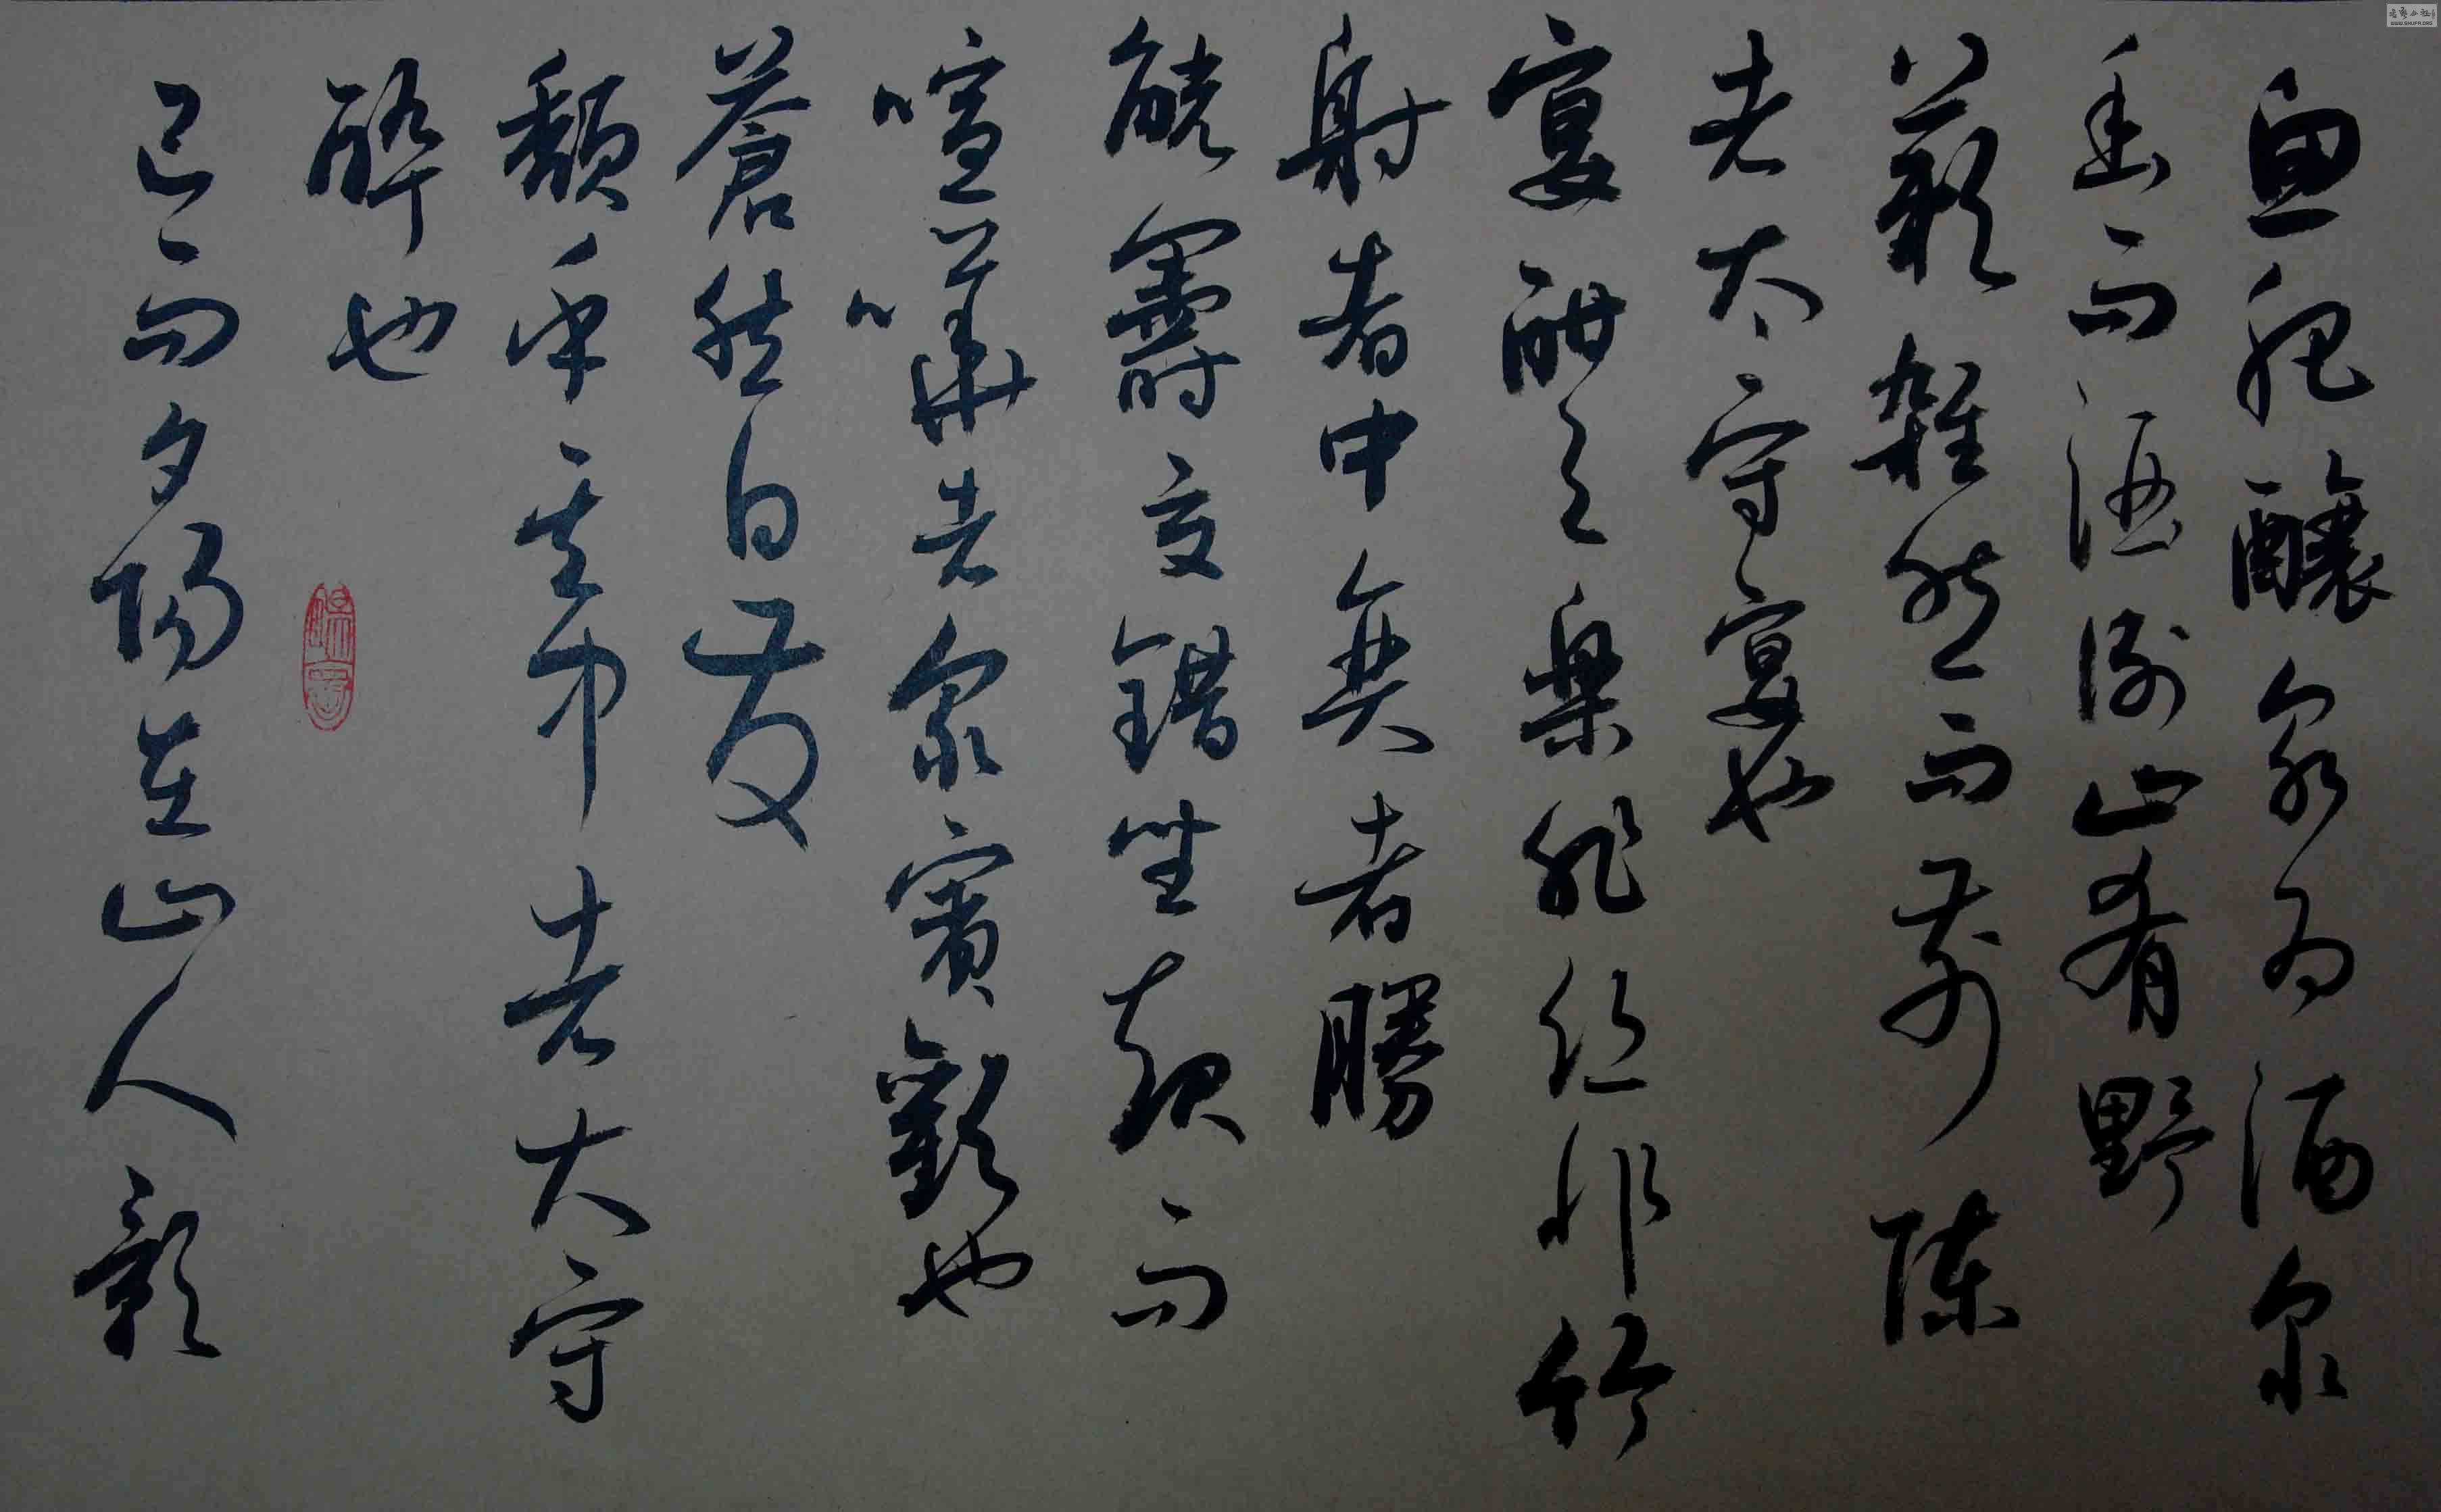 魚肥釀泉為酒泉
香而酒洌山肴野
蔌雜然而前陳
者太守宴也
宴酣之樂非絲非竹
射者中奕者勝
觥籌交錯坐起而
喧嘩者眾賓歡也
蒼然白發
頹乎其中者太守
醉也
已而夕陽在山人影
WWW.SHUFA.ORG